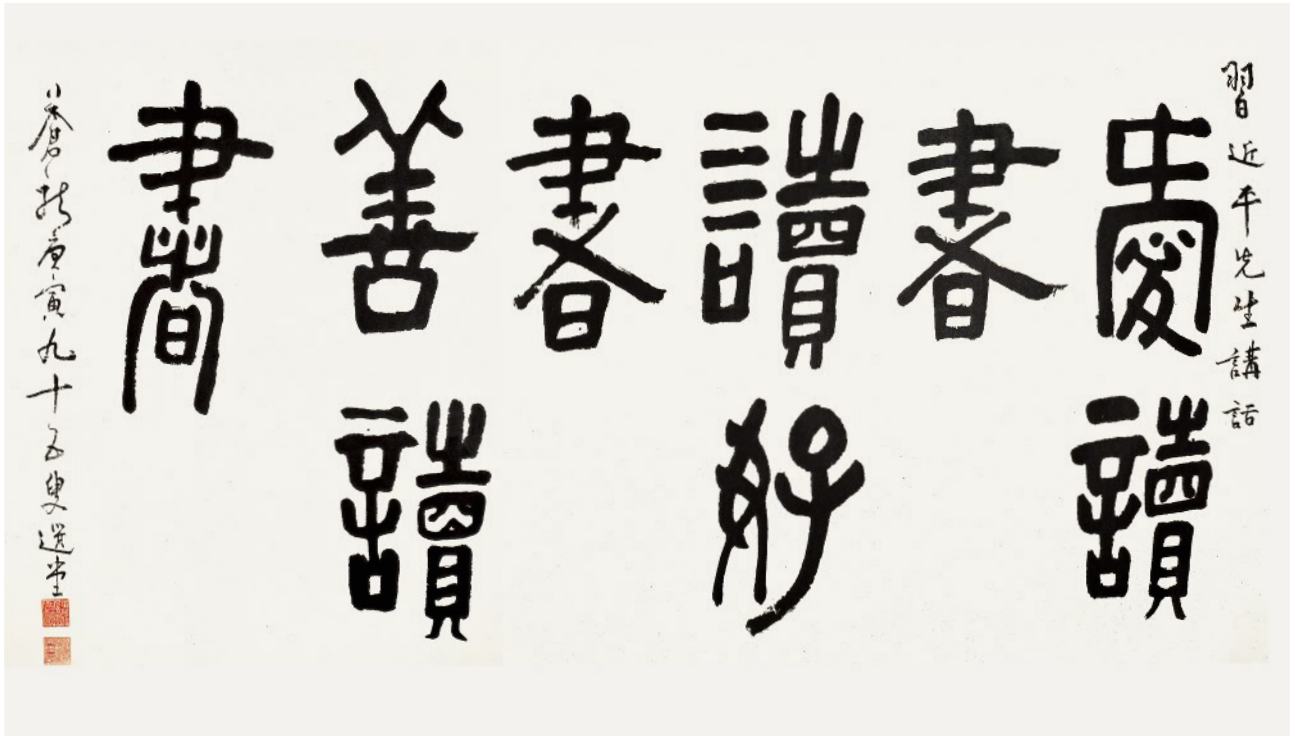 習近平先生講話
愛讀
書
讀好
書
善讀
書
庚寅九十五叟選堂